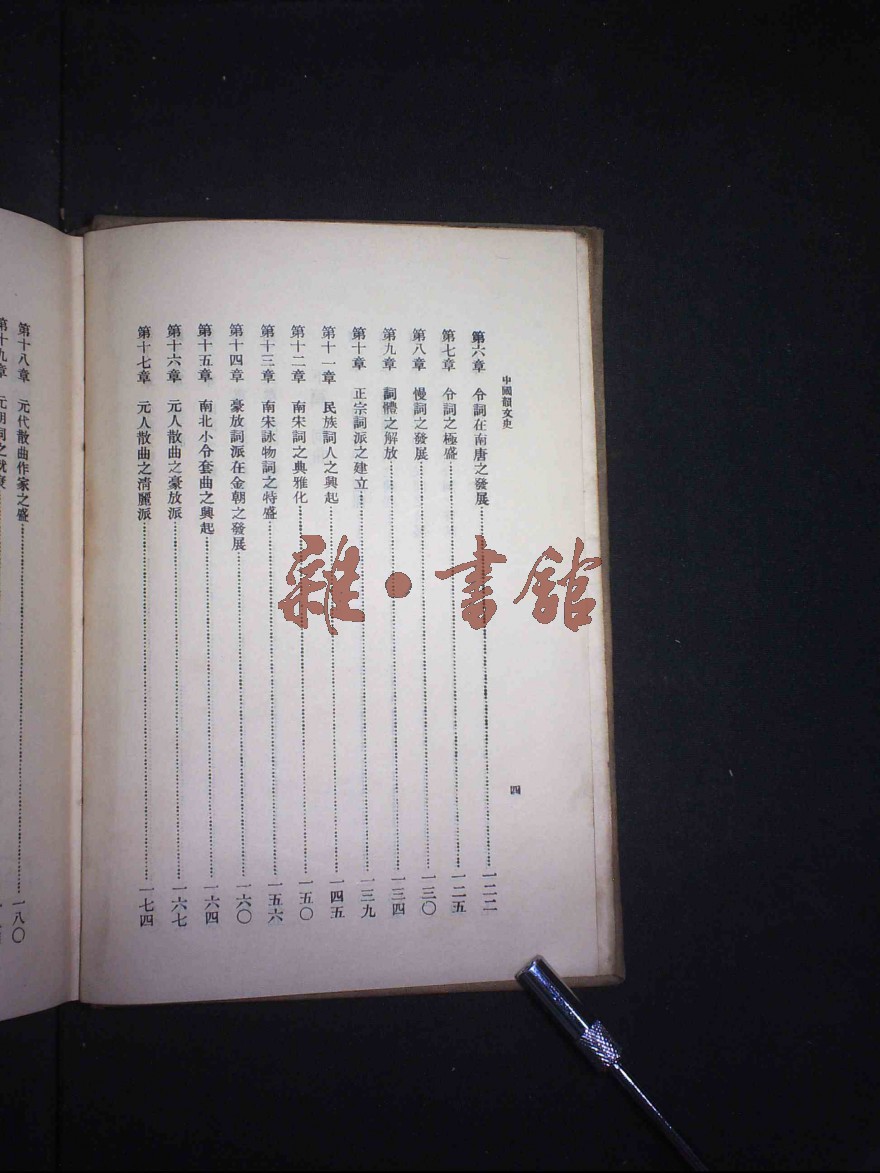 中國韻文史
四
第六章　令詞在南唐之發展……一二二
第七章　令詞之極盛……一二五
第八章　慢詞之發展……一三〇
第九章　詞體之解放……一三四
第十章　正宗詞派之建立……一三九
第十一章　民族詞人之興起……一四五
第十二章　南宋詞之典雅化……一五〇
第十三章　南宋詠物詞之特盛……一五六
第十四章　豪放詞派在金朝之發展……一六〇
第十五章　南北小令套曲之興起……一六四
第十六章　元人散曲之豪放派……一六七
第十七章　元人散曲之清麗派……一七四
第十八章　元代散曲作家之盛……一八〇
第十九章　元明詞之就衰
雜•書館